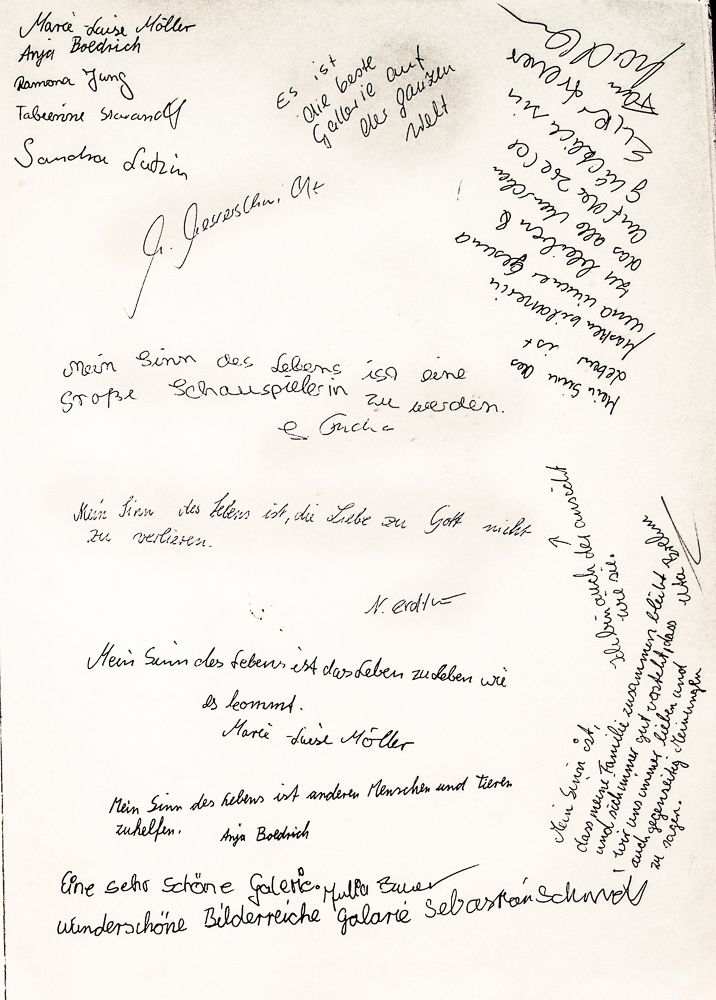 Marie-Luise Möller
Anja Boedrich
Ramona Jung
Sandra
Es ist
die beste
Gallerie auf
der ganzen
Welt
Mein Sinn des
Leben ist
Maskenbildnerin
und immer gesund
zu bleiben &
das alle Menschen
auf der Welt
Glücklich sin
Mein Sinn des Lebens ist eine
große Schauspielerin zu werden.
Mein Sinn des Lebens ist, die Liebe zu Gott nicht
zu verlieren.
Mein Sinn des Lebens ist das Leben zu leben wie
es kommt.
Marie-Luise Möller
Mein Sinn des Lebens ist anderen Menschen und tieren
zuhelfen.
Anja Boedrich
Mein Sinn ist,
dass meine Familie zusammen bleibt
und sich immer gut versteht, dass
wir uns immer lieben und
auch gegenseitig Meinungen
zu sagen.
Ich bin auch der ansicht
wie sie.
Eine sehr schöne Galerie.
wunderschöne Bilderreiche Galarie Sebastian Schmidt